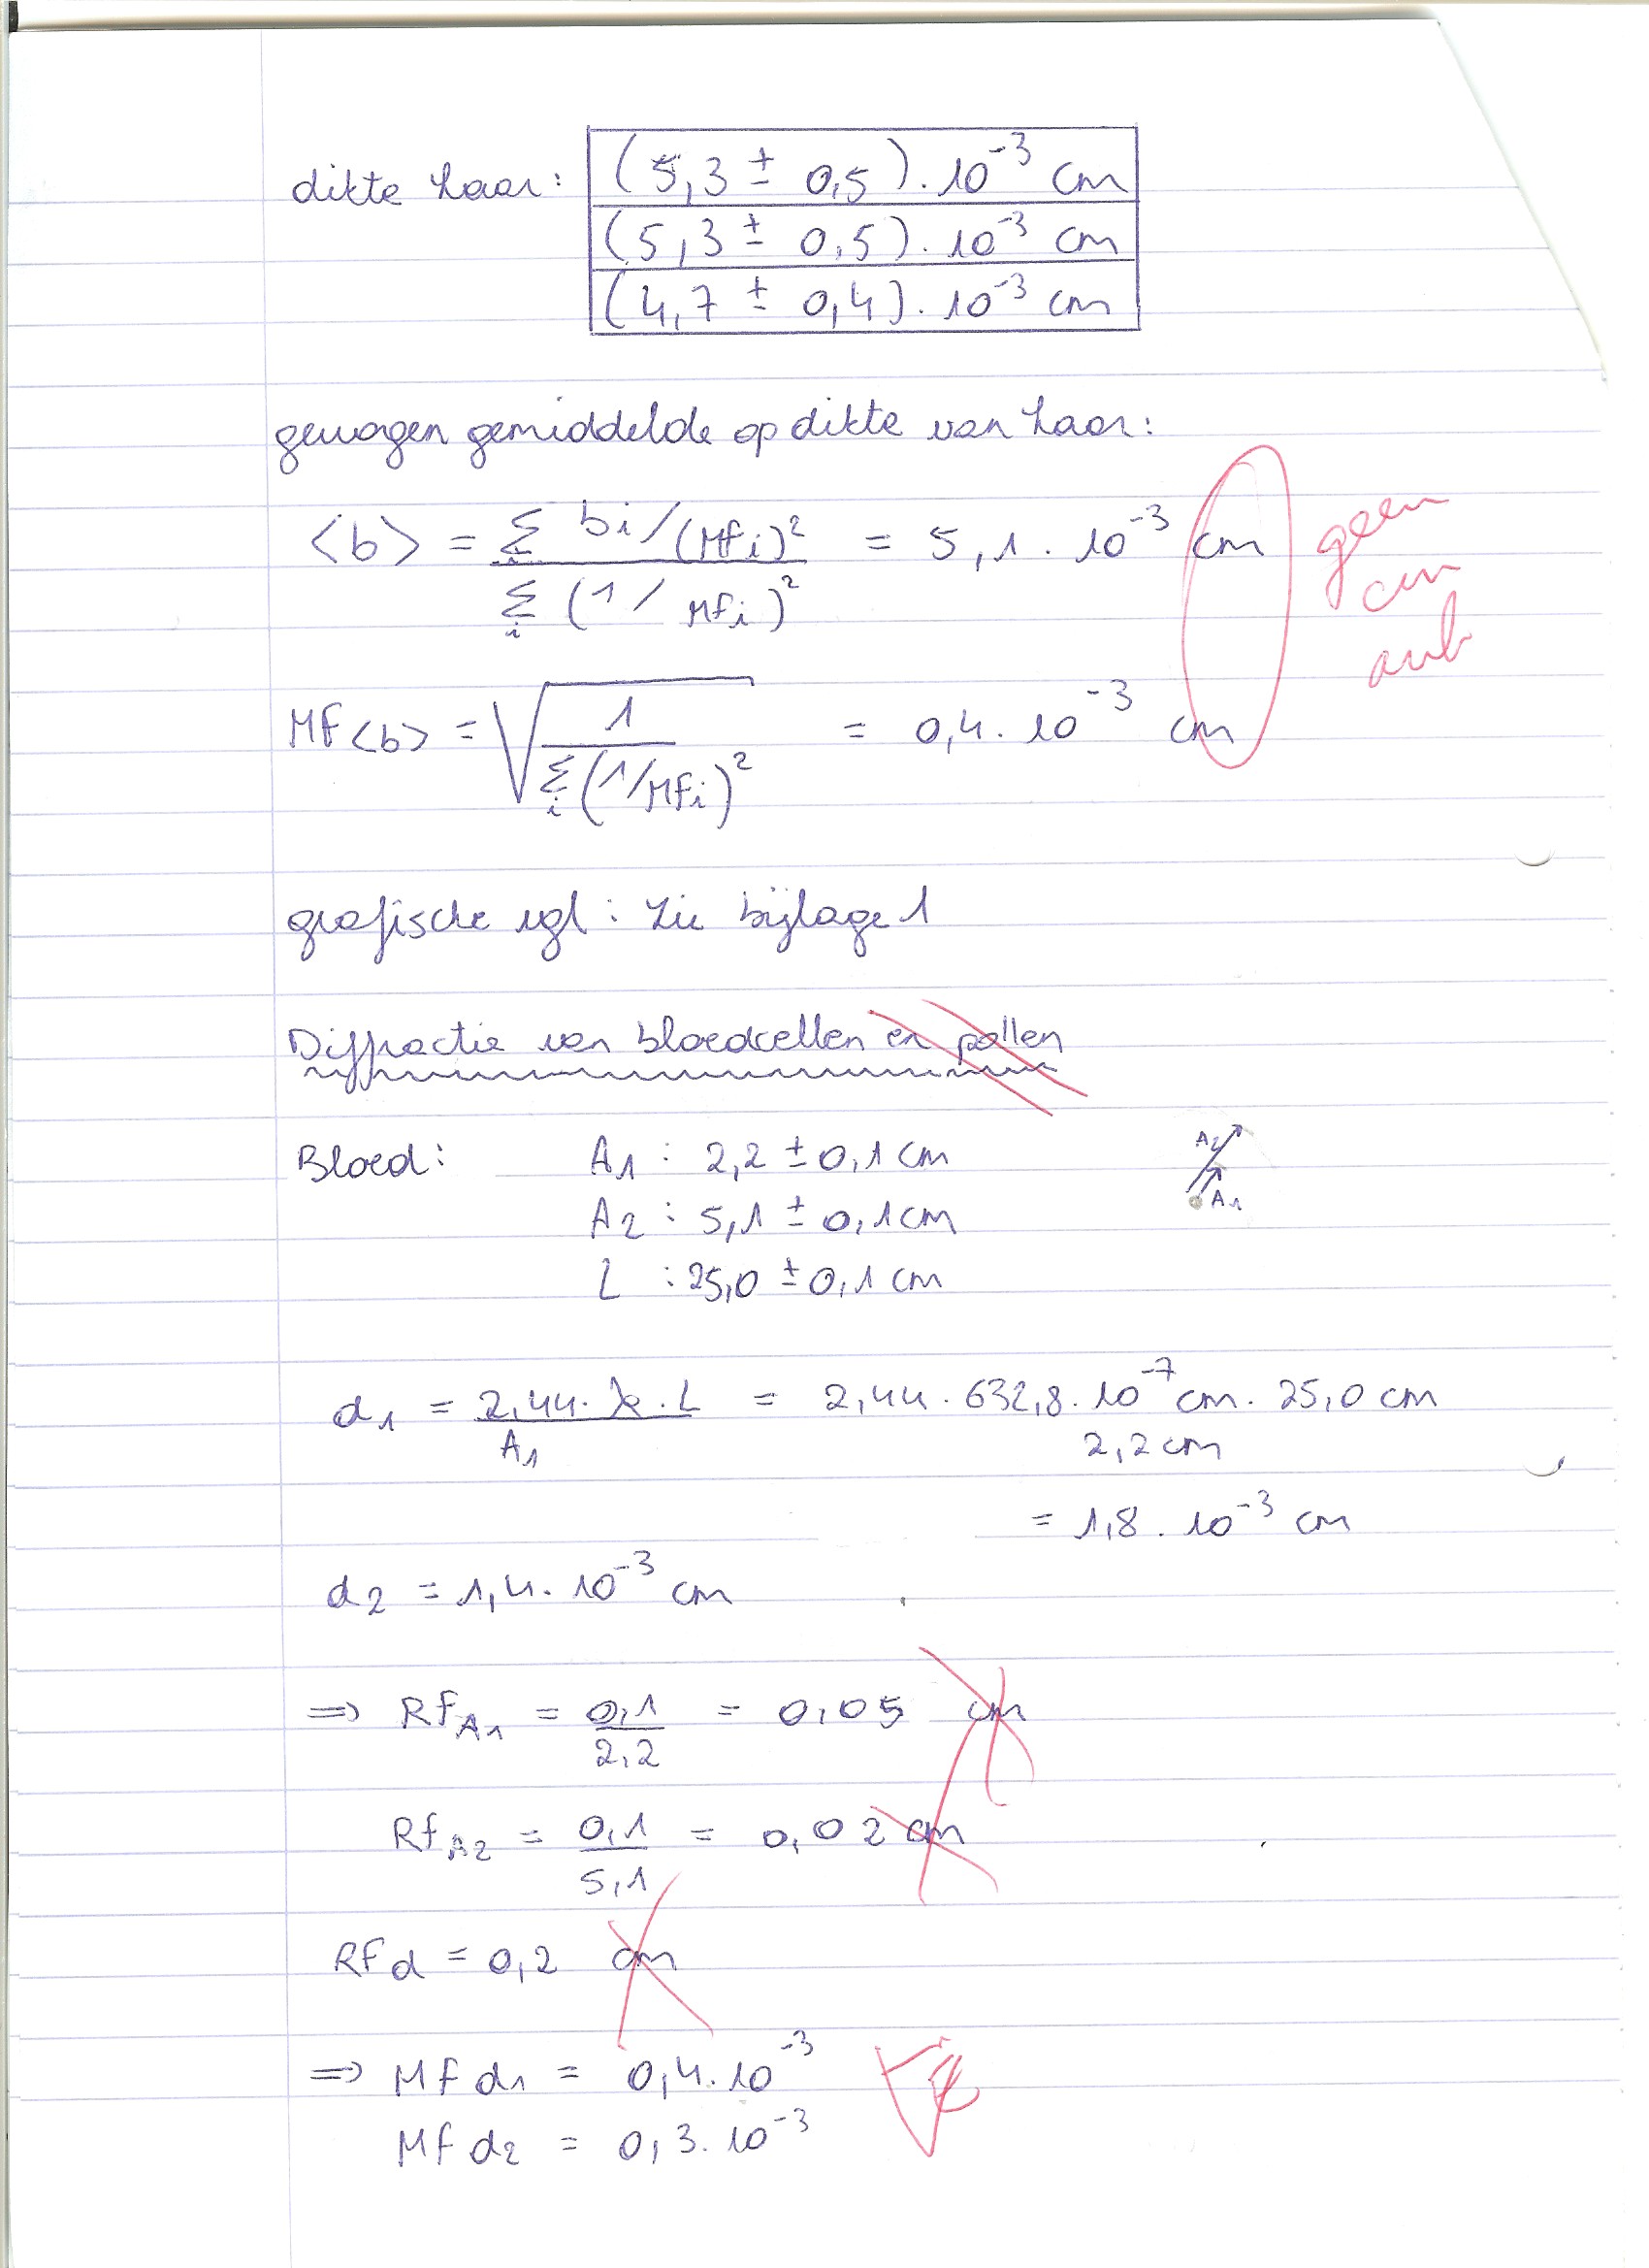 dikte haar: (5,3 ± 0,5).10⁻³ cm
(5,3 ± 0,5).10⁻³ cm
(4,7 ± 0,4).10⁻³ cm
gewogen gemiddelde op dikte van haar:
<b> = Σᵢ bi/(Mfi)² / Σᵢ (1/Mfi)² = 5,1.10⁻³ cm
geen
cm
aub
MF<b> = √(1 / Σᵢ(1/Mfi)²) = 0,4.10⁻³ cm
grafische vgl: Zie bijlage 1
Diffractie van bloedcellen en pollen
Bloed: A1 : 2,2 ± 0,1 cm
A2 : 5,1 ± 0,1 cm
L : 25,0 ± 0,1 cm
A2
A1
d1 = 2,44.λ.L / A1 = 2,44.632,8.10⁻⁷ cm.25,0 cm / 2,2 cm
= 1,8.10⁻³ cm
d2 = 1,4.10⁻³ cm
=> RfA1 = 0,1 / 2,2 = 0,05 cm
RfA2 = 0,1 / 5,1 = 0,02 cm
Rfd = 0,2 cm
=> Mfd1 = 0,4.10⁻³
Mfd2 = 0,3.10⁻³